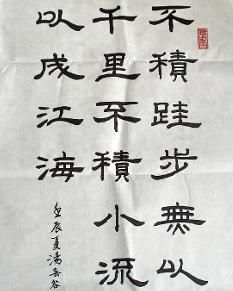 不積跬步無以
千里不積小流
以成江海
壬辰夏